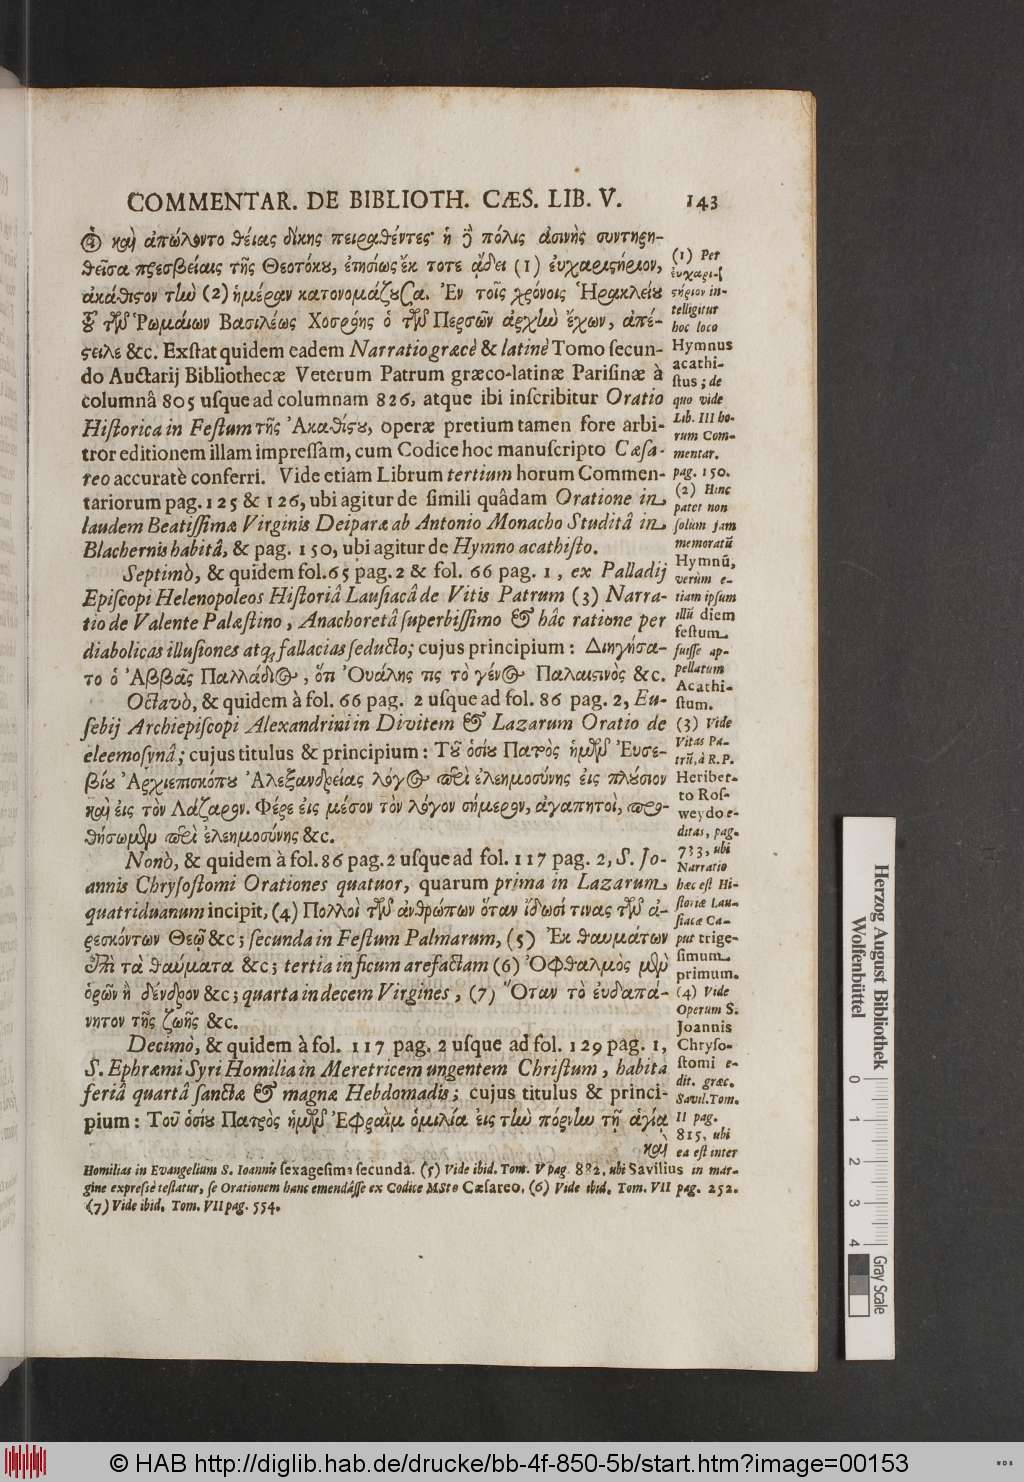 COMMENTAR. DE BIBLIOTH. CÆS. LIB. V. 143
καὶ ἀπώλοντο θέιας δίκης πειραθέντες· ἡ ἢ πόλις ἀσινὴς συντηρη-
θεῖσα πρεσβείαις τῆς Θεοτόκου, ἐτησίως ἔκ τοτε ᾄδει (1) ἐυχαριστήριον,
ἀκάθιστον τὴν (2) ἡμέραν κατονομάζουσα. Ἐν τοῖς χρόνοις Ἡρακλείου
τοῦ τῶν Ῥωμαίων Βασιλέως Χοσρόης ὁ τῶν Περσῶν ἀρχὴν ἔχων, ἀπέ-
στειλε &c. Exſtat quidem eadem Narratio græcè & latinè Tomo ſecun-
do Auctarij Bibliothecæ Veterum Patrum græco-latinæ Pariſinæ à
columnâ 805 uſque ad columnam 826, atque ibi inſcribitur Oratio
Hiſtorica in Feſtum τῆς Ἀκαθίστου, operæ pretium tamen fore arbi-
tror editionem illam impreſſam, cum Codice hoc manuſcripto Cæſa-
reo accuratè conferri. Vide etiam Librum tertium horum Commen-
tariorum pag. 125 & 126, ubi agitur de ſimili quâdam Oratione in
laudem Beatiſſimæ Virginis Deiparæ ab Antonio Monacho Studitâ in
Blachernis habitâ, & pag. 150, ubi agitur de Hymno acathiſto.
Septimò, & quidem fol. 65 pag. 2 & fol. 66 pag. 1, ex Palladij
Epiſcopi Helenopoleos Hiſtoriâ Lauſiacâ de Vitis Patrum (3) Narra-
tio de Valente Palæſtino, Anachoretâ ſuperbiſſimo & hâc ratione per
diabolicas illuſiones atq; fallacias ſeducto; cujus principium: Διηγήσα-
το ὁ Ἀββᾶς Παλλάδιος, ὅτι Ὀυάλης τις τὸ γένος Παλαιστινὸς &c.
Octavò, & quidem à fol. 66 pag. 2 uſque ad fol. 86 pag. 2, Eu-
ſebij Archiepiſcopi Alexandrini in Divitem & Lazarum Oratio de
eleemoſynâ; cujus titulus & principium: Τοῦ ὁσίου Πατρὸς ἡμῶν Ἐυσε-
βίου Ἀρχιεπισκόπου Ἀλεξανδρείας λόγος περὶ ἐλεημοσύνης ἐις πλούσιον
καὶ ἐις τὸν Λάζαρον. Φέρε ἐις μέσον τὸν λόγον σήμερον, ἀγαπητοὶ, προ-
θήσωμεν περὶ ἐλεημοσύνης &c.
Nonò, & quidem à fol. 86 pag. 2 uſque ad fol. 117 pag. 2, S. Jo-
annis Chryſoſtomi Orationes quatuor, quarum prima in Lazarum
quatriduanum incipit, (4) Πολλοὶ τῶν ἀνθρώπων ὅταν ἴδωσί τινας τῶν ἀ-
ρεσκόντων Θεῷ &c; ſecunda in Feſtum Palmarum, (5) Ἐκ θαυμάτων
ἐπὶ τὰ θαύματα &c; tertia in ficum arefactam (6) Ὀφθαλμὸς μὲν
ὁρῶν ἢ δένδρον &c; quarta in decem Virgines, (7) Ὅταν τὸ ἐυδαπά-
νητον τῆς ζωῆς &c.
Decimò, & quidem à fol. 117 pag. 2 uſque ad fol. 129 pag. 1,
S. Ephræmi Syri Homilia in Meretricem ungentem Chriſtum, habita
feriâ quartâ ſanctæ & magnæ Hebdomadis; cujus titulus & princi-
pium: Τοῦ ὁσίου Πατρὸς ἡμῶν Ἐφραῒμ ὁμιλία ἐις τὴν πόρνην τῇ ἁγίᾳ
καὶ
(1) Per
ἐυχαρι-
στήριον in-
telligitur
hoc loco
Hymnus
acathi-
ſtus; de
quo vide
Lib. III ho-
rum Com-
mentar.
pag. 150.
(2) Hinc
patet non
ſolùm jam
memoratũ
Hymnũ,
verùm e-
tiam ipſum
illũ diem
feſtum
fuiſſe ap-
pellatum
Acathi-
ſtum.
(3) Vide
Vitas Pa-
trũ, à R. P.
Heriber-
to Roſ-
weydo e-
ditas, pag.
733, ubi
Narratio
hæc eſt Hi-
ſtoriæ Lau-
ſiacæ Ca-
put trige-
ſimum
primum.
(4) Vide
Operum S.
Joannis
Chryſo-
ſtomi e-
dit. græc.
Savil. Tom.
II pag.
815, ubi
ea eſt inter
Homilias in Evangelium S. Ioannis ſexageſima ſecunda. (5) Vide ibid. Tom. V pag. 882, ubi Savilius in mar-
gine expreſsè teſtatur, ſe Orationem hanc emendâſſe ex Codice MSto Cæſareo. (6) Vide ibid. Tom. VII pag. 252.
(7) Vide ibid. Tom. VII pag. 554.
Herzog August Bibliothek
Wolfenbüttel
0 1 2 3 4
Gray Scale
© HAB http://diglib.hab.de/drucke/bb-4f-850-5b/start.htm?image=00153